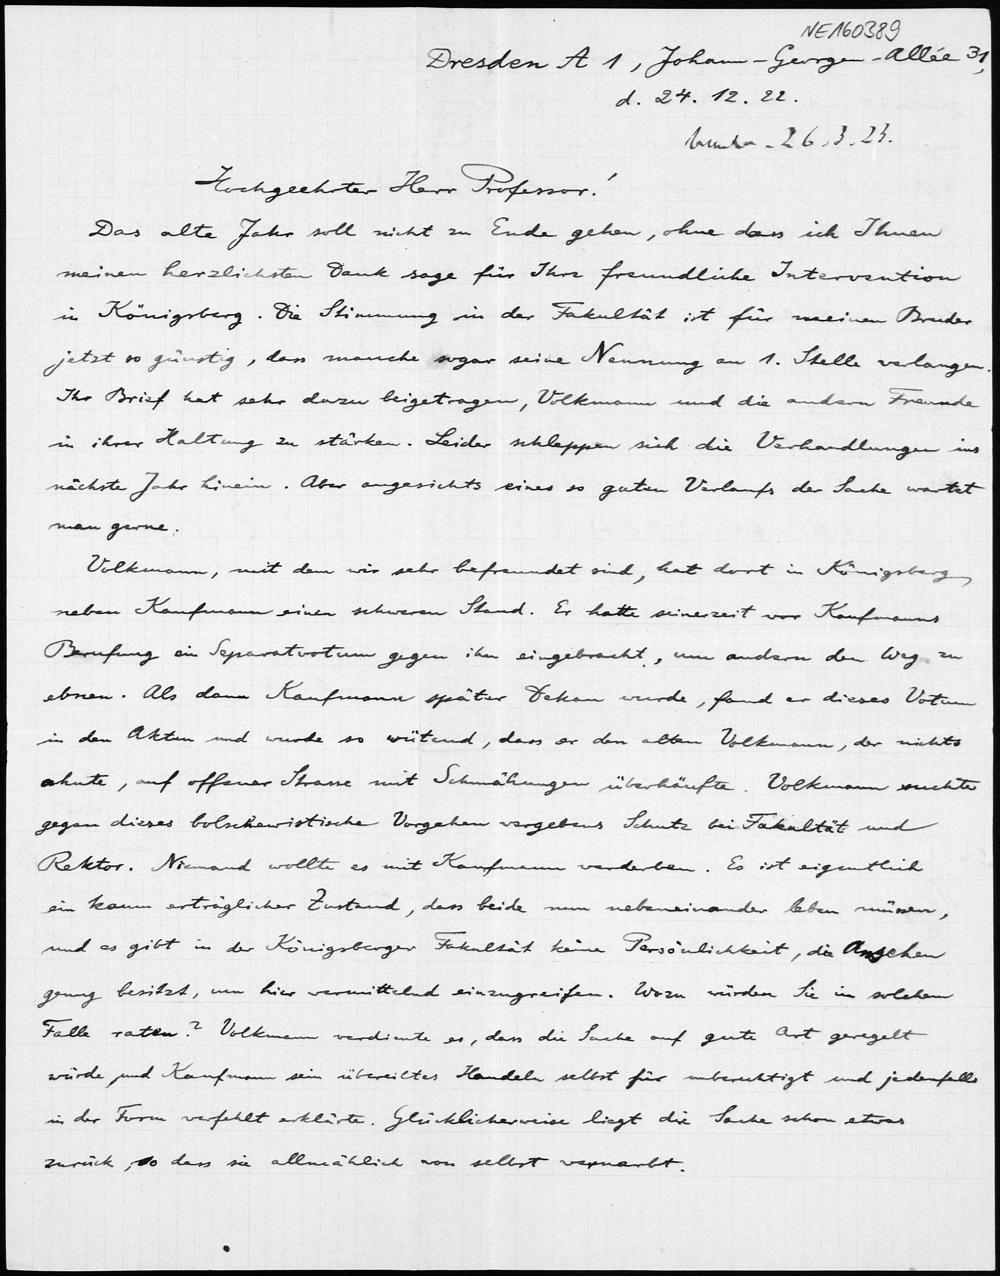 NE160389
Dresden A 1, Johann-Georgen-Allée 31,
d. 24. 12. 22.
26.3.23.
Hochgeehrter Herr Professor!
Das alte Jahr soll nicht zu Ende gehen, ohne dass ich Ihnen
meinen herzlichsten Dank sage für Ihre freundliche Intervention
in Königsberg. Die Stimmung in der Fakultät ist für meinen Bruder
jetzt so günstig, dass manche sogar seine Nennung an 1. Stelle verlangen.
Ihr Brief hat sehr dazu beigetragen, Volkmann und die andern Freunde
in ihrer Haltung zu stärken. Leider schleppen sich die Verhandlungen ins
nächste Jahr hinein. Aber angesichts eines so guten Verlaufs der Sache wartet
man gerne.
Volkmann, mit dem wir sehr befreundet sind, hat dort in Königsberg,
neben Kaufmann einen schweren Stand. Er hatte seinerzeit vor Kaufmanns
Berufung ein Separatvotum gegen ihn eingebracht, um andern den Weg zu
ebnen. Als dann Kaufmann später Dekan wurde, fand er dieses Votum
in den Akten und wurde so wütend, dass er den alten Volkmann, der nichts
ahnte, auf offener Strasse mit Schmähungen überhäufte. Volkmann suchte
gegen dieses bolschewistische Vorgehen vergebens Schutz bei Fakultät und
Rektor. Niemand wollte es mit Kaufmann verderben. Es ist eigentlich
ein kaum erträglicher Zustand, dass beide nun nebeneinander leben müssen,
und es gibt in der Königsberger Fakultät keine Persönlichkeit, die Ansehen
genug besitzt, um hier vermittelnd einzugreifen. Wozu würden Sie in solchem
Falle raten? Volkmann verdiente es, dass die Sache auf gute Art geregelt
würde, und Kaufmann sein übereiltes Handeln selbst für unberechtigt und jedenfalls
in der Form verfehlt erklärte. Glücklicherweise liegt die Sache schon etwas
zurück, so dass sie allmählich von selbst vernarbt.